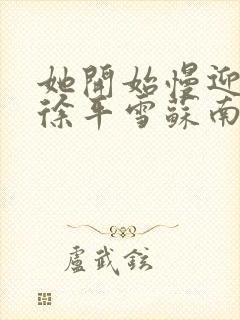 她開始慢迎
徐平雪蘇南
盧武鉉